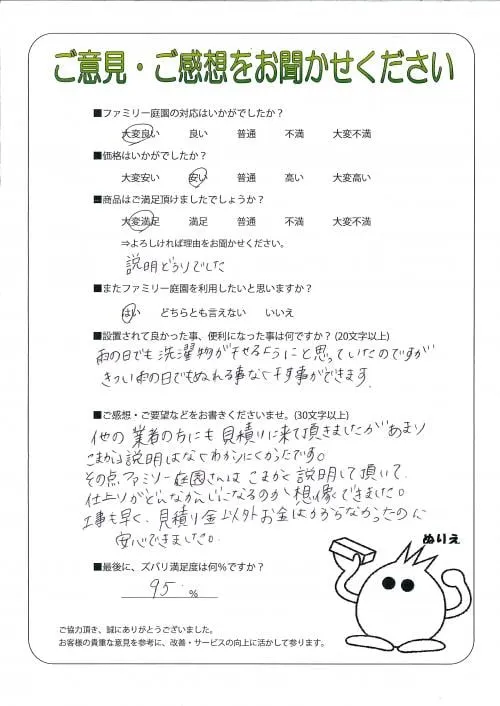 ご意見・ご感想をお聞かせください
■ファミリー庭園の対応はいかがでしたか？
大変良い　良い　普通　不満　大変不満
■価格はいかがでしたか？
大変安い　安い　普通　高い　大変高い
■商品はご満足頂けましたでしょうか？
大変満足　満足　普通　不満　大変不満
⇒よろしければ理由をお聞かせください。
説明どうりでした
■またファミリー庭園を利用したいと思いますか？
はい　どちらとも言えない　いいえ
■設置されて良かった事、便利になった事は何ですか？(20文字以上)
雨の日でも洗濯物が干せるようにと思っていたのですが
きつい雨の日でもぬれる事なく干す事ができます。
■ご感想・ご要望などをお書きくださいませ。(30文字以上)
他の業者の方にも見積りに来て頂きましたがあまり
こまかい説明はなくわかりにくかったです。
その点ファミリー庭園さんはこまかく説明して頂いて、
仕上りがどんなかんじになるのか想像できました。
工事も早く、見積り金以外お金はかからなかったのに
安心できました。
■最後に、ズバリ満足度は何％ですか？
95.％
ぬりえ
ご協力頂き、誠にありがとうございました。
お客様の貴重な意見を参考に、改善・サービスの向上に活かして参ります。